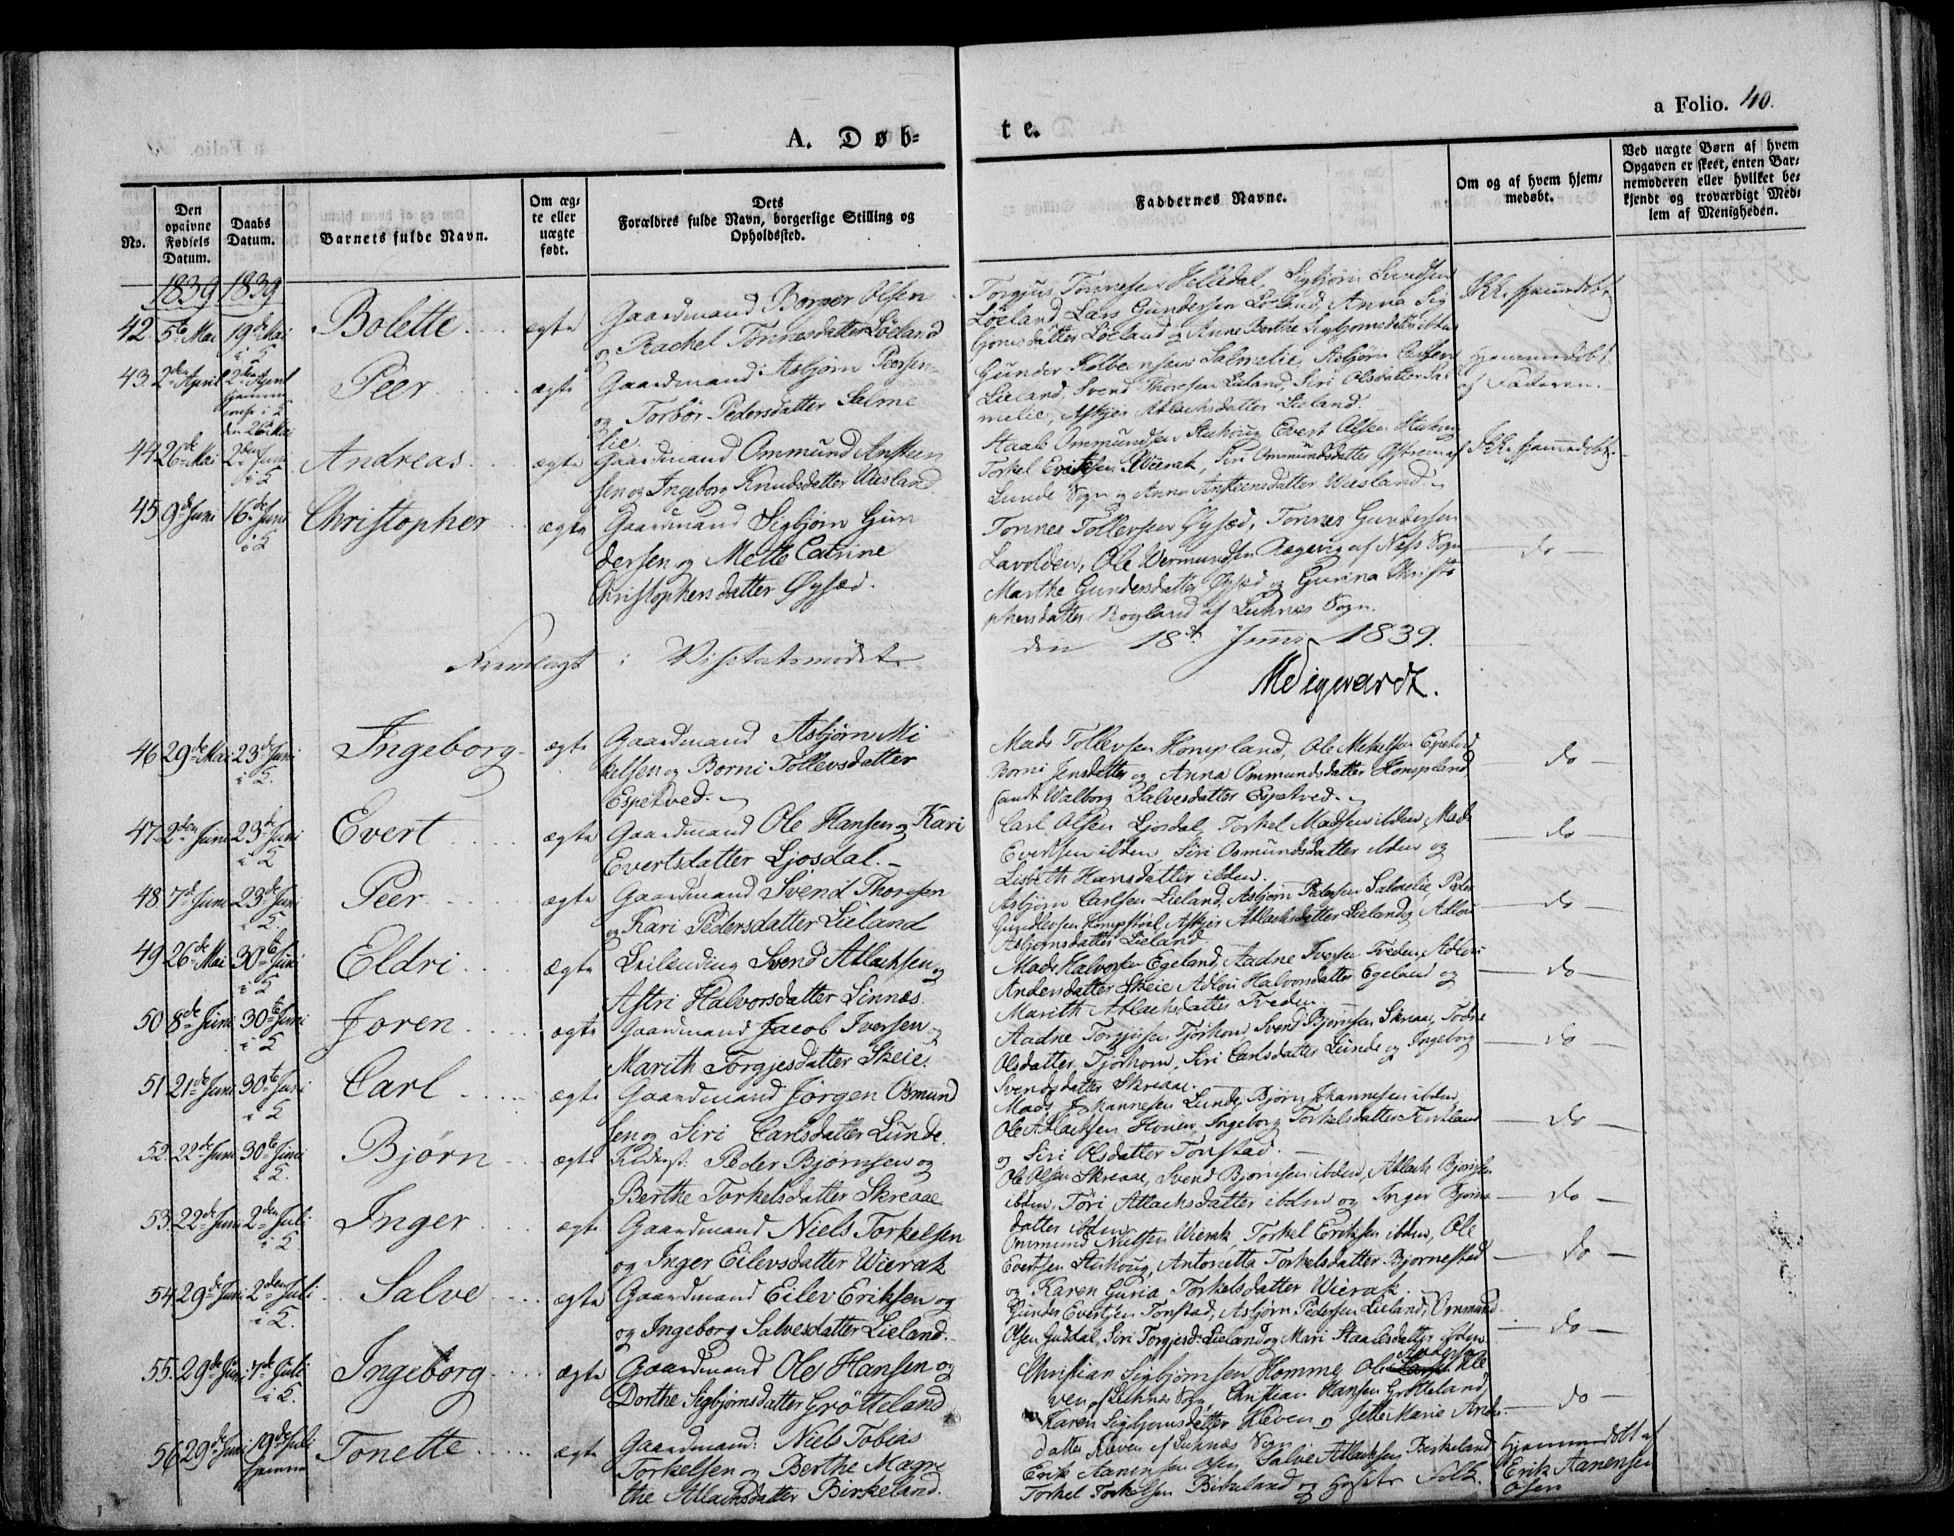 a Folio. 40.
A. Døb-
te.
No.
Den opgivne Fødsels Datum.
Daabs Datum.
Barnets fulde Navn.
Om ægte eller uægte født.
Dets Forældres fulde Navn, borgerlige Stilling og Opholdssted.
Faddernes Navne.
Om og af hvem hjemmedøbt.
Ved uægte Børn af hvem Opgaven er skeet, enten Barnemoderen eller hvilket bekjendt og troværdigt Medlem af Menigheden.
1839 1839
42. 5te Mai 19de Mai i K Bolette ægte Gaardmand Borger Olsen
og Rachel Tønnesdatter Løeland
Torgjus Tønnesen Helledal, Sigbjørn Svendsen
Løeland, Lars Gundersen Løeland, Anna Sig
bjørnsdatter Løeland og Anne Berthe Sigbjørnsdatter ibden
Ikke hjemmedøbt
43. 2den April 2den April hjemme i K den 26de Mai Peer ægte Gaardmand Asbjørn Peersen
og Torbør Pedersdatter Salme
lie
Gunder Kolbensen Salmelie, Asbjørn Carlsen
Lieland, Svend Thoresen Lieland, Siri Olsdatter Sal
melie, Askjer Atlachsdatter Lieland.
Hjemmedøbt
af Faderen.
44 26de Mai 2den Juni i K Andreas ægte Gaardmand Ommund Ansteen
sen og Ingeborg Knudsdatter Wiesland
Staale Ommundsen Stuhoug, Evert Olsen Stuhoug
Torkel Eriksen Wierak, Siri Ommundsdatter Østrem af
Lunde Sogn og Anna Ansteensdatter Wiesland.
Ikke hjemmedøbt.
45 9de Juni 16de Juni i K Christopher ægte Gaardmand Sigbjørn Gun
dersen og Mette Catrine
Christophersdatter Øysæd.
Tønnes Tollevsen Øysæd, Tønnes Gundersen
Lavolden, Ole Wermundsen Aagevig af Næss Sogn
Marthe Gundersdatter Øysæd og Gurina Christo
phersdatter Rogland af Luhnes Sogn.
do
Fremlagt i Visitatsmødet den 18de Juni 1839.
46 29de Mai 23de Juni i K. Ingeborg ægte Gaardmand Asbjørn Mi
kelsen og Borni Tollevsdatter
Espetved.
Mads Tollevsen Hompland, Ole Mikelsen Espetved
Borni Jensdatter og Anna Ommundsdatter Hompland
samt Walborg Salvesdatter Espetved.
do
47 2den Juni 23de Juni i K Evert ægte Gaardmand Ole Hansen og Kari
Evertsdatter Ljosdal.
Carl Olsen Ljosdal, Torkel Madsen ibden, Mads
Evertsen ibden, Siri Osmundsdatter ibden og
Lisbeth Hansdatter ibden.
do
48 7de Juni 23de Juni i K. Peer ægte Gaardmand Svend Thoresen
og Kari Pedersdatter Lieland
Asbjørn Carlsen Lieland, Asbjørn Pedersen Salmelie, Peder
Gundersen Hompstøl, Askjer Atlachsdatter Lieland og Adlou
Asbjørnsdatter Lieland
do
49 26de Mai 30te Juni i K Eldri ægte Leilending Svend Atlachsen og
Astri Halvorsdatter Sinnæs.
Mads Halvorsen Egeland, Aadne Iversen Tveden, Adlou
Andersdatter Skeie, Adlou Halvorsdatter Egeland og
Marith Atlachsdatter Tveden.
do
50 8de Juni 30te Juni i K Joren ægte Gaardmand Jacob Iversen og
Marith Torgjesdatter Skeie.
Aadne Torgjusen Tjørhom, Svend Bjørnsen Skreaae, Todne
Olsdatter Tjørhom, Siri Carlsdatter Lunde og Ingeborg
Svendsdatter Skreaae.
do
51 21de Juni 30te Juni i K Carl ægte Gaardmand Jørgen Osmund
sen og Siri Carlsdatter Lunde.
Mads Johannesen Lunde, Bjørn Johannesen ibden,
Ole Atlachsen Houen, Ingeborg Torkelsdatter
og Siri Olsdatter Tonstad.
do
52. 22de Juni 30te Juni i K. Bjørn ægte Peder Bjørnsen og
Berthe Torkelsdatter Skreaae
Ole Olsen Skreaae, Svend Bjørnsen ibden, Atlach Bjørnsen
ibden, Tori Atlachsdatter ibden og Inger Bjørns
datter ibden
do
53. 22de Juni 2den Juli i K Inger ægte Gaardmand Niels Torkelsen
og Inger Eilevsdatter Wierak
Ommund Nielsen Wierak, Torkel Eriksen ibden, Ole
Evertsen Stuhoug, Antonetta Torkelsdatter Bjørnestad
og Karen Guria Torkelsdatter Wierak.
do
54. 29de Juni 2den Juli i K. Salve ægte Gaardmand Eilev Eriksen og
og Ingeborg Salvesdatter Lieland.
Gunder Evertsen Tonstad, Asbjørn Pedersen Lieland, Ommund
Olsen Guddal, Siri Torgjesd: Lieland og Mari Staalesdatter ibden
do
55. 29de Juni 7de Juli i K. Ingeborg ægte Gaardmand Ole Hansen og
Dorthe Sigbjørnsdatter Grøtteland
Christian Sigbjørnsen Homme, Ole Andersen Kle
ven af Luhnes Sogn, Christian Hansen Grøtteland,
Karen Sigbjørnsdatter Kleven og Jette Marie Anders
datter Kleven af Luhnæs Sogn
do
56 29de Juni 19de Juli hjemme Tonette ægte Gaardmand: Niels Tobias
Torkelsen og Berthe Magre
the Atlachsdatter Birkeland.
Erik Aanensen Osen, Salve Atlachsen Birkeland
Torkel Torkelsen Birkeland og Folk.
Hjemmedøbt af
Erik Aanensen
Osen